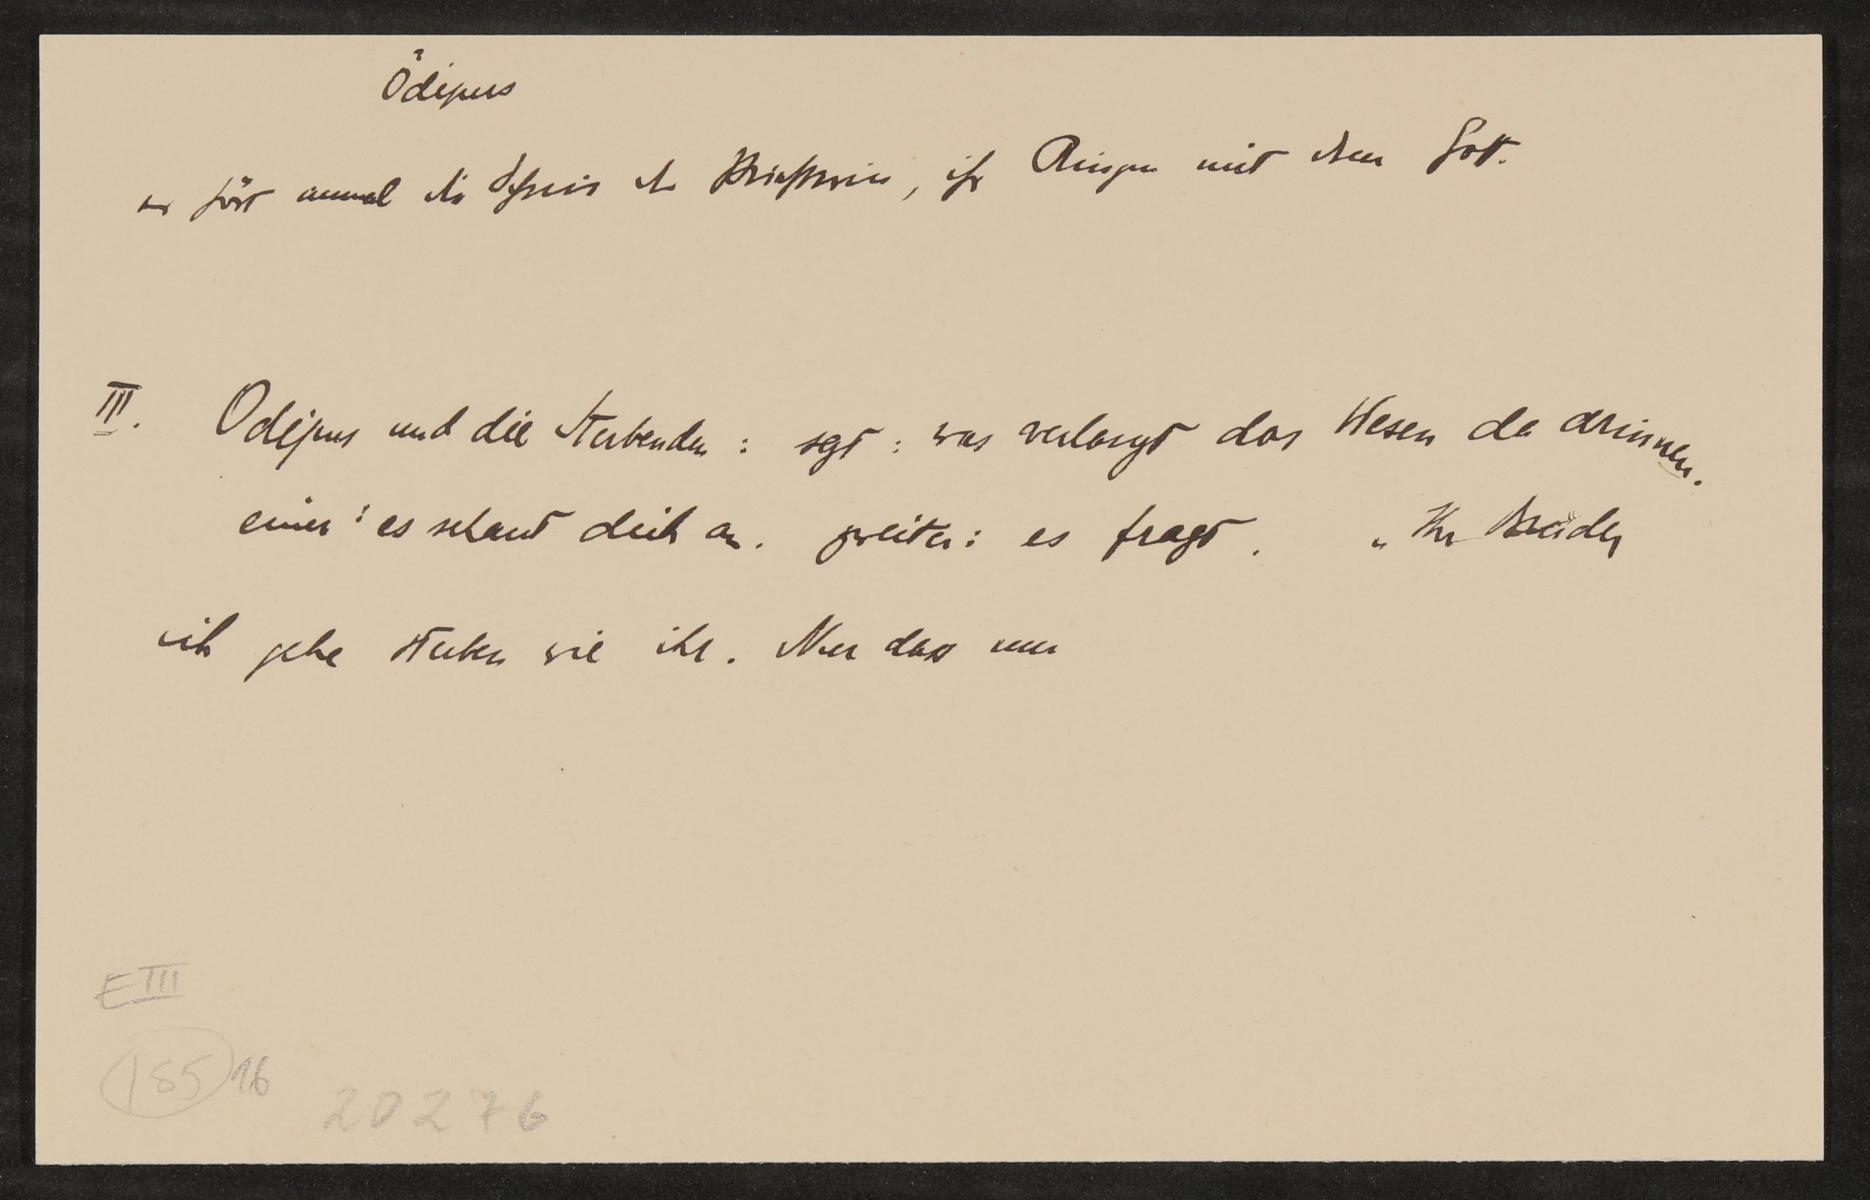 Ödipus
er hört einmal die Schreie der Priesterin, ihr Ringen mit dem Gott.
III. Ödipus und die Sterbenden: sagt: was verlangt das Wesen da drinnen.
einer: es schaut dich an. zweiter: es fragt. „Ihr Brüder
ich gehe sterben wie ihr. Nur dass nur
E III
185 16
20276